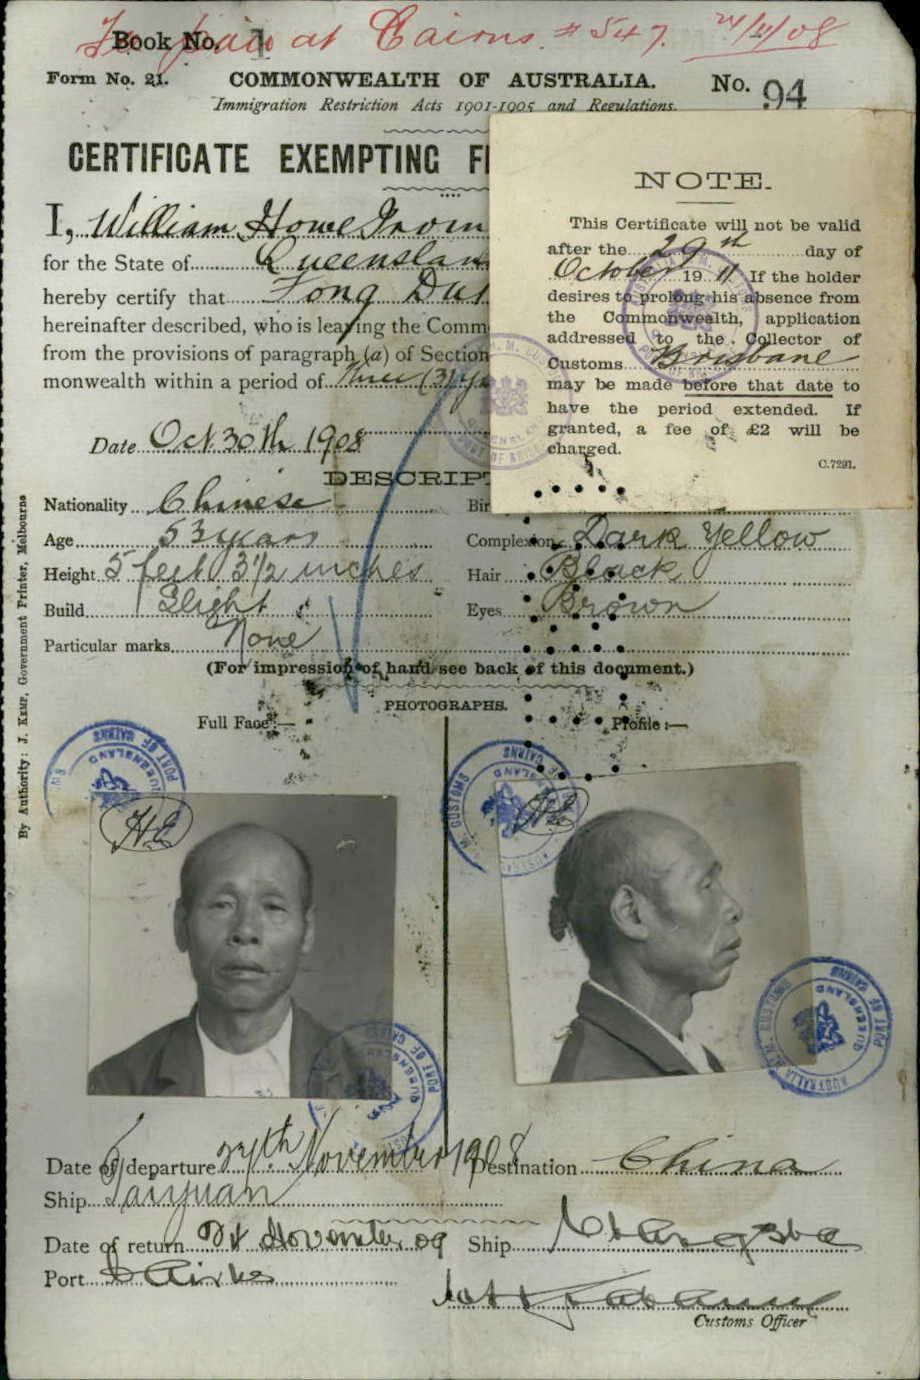 Fee paid at Cairns. # 547. 24/11/08
Book No. 1
Form No. 21. COMMONWEALTH OF AUSTRALIA. No. 94
Immigration Restriction Acts 1901-1905 and Regulations.
CERTIFICATE EXEMPTING
I, William Howe
for the State of Queensland
hereby certify that
hereinafter described, who is leaving the Comm
from the provisions of paragraph (a) of Section
monwealth within a period of Three (3) ye
Date Oct 30th 1908
NOTE.
This Certificate will not be valid
after the 29th day of
October 1911 If the holder
desires to prolong his absence from
the Commonwealth, application
addressed to the Collector of
Customs Brisbane
may be made before that date to
have the period extended. If
granted, a fee of £2 will be
charged.
C.7291.
DESCRIPT
Nationality Chinese Bir
Age 53 years Complexion Dark Yellow
Height 5 feet 3½ inches Hair Black
Build Slight Eyes Brown
Particular marks None
(For impression of hand see back of this document.)
PHOTOGRAPHS.
Full Face :— Profile :—
By Authority: J. KEMP, Government Printer, Melbourne
PORT OF CAIRNS
QUEENSLAND
H.M. CUSTOMS
PORT OF CAIRNS
QUEENSLAND
AUSTRALIA
PORT OF CAIRNS
QUEENSLAND
AUSTRALIA H.M. CUSTOMS
PORT OF CAIRNS
QUEENSLAND
Date of departure 24th November 1908 Destination China
Ship Taiyuan
Date of return November 09 Ship Changsha
Port Cairns
Customs Officer